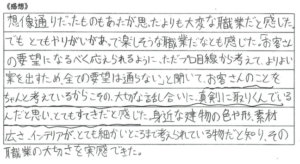 《感想》
想像通りだったものもあたが思ったよりも大変な職業だと感じた。
でもとてもやりがいがあって楽しそうな職業だなとも感じた。お客さん
の要望になるべく応えられるように、ただプロ目線が考えて、よりよい
案を出すため、全ての要望は通らない」と聞いて、お客さんのことを
ちゃんと考えているからこその、大切な話し合いに、真剣に取りくんでいる
んだと思い、とてもすてきだと感じた。身近な建物の色や形、素材
広さ、インテリアが、とても細かいところまで考えられている物だと知り、その
職業の大切さを実感できた。